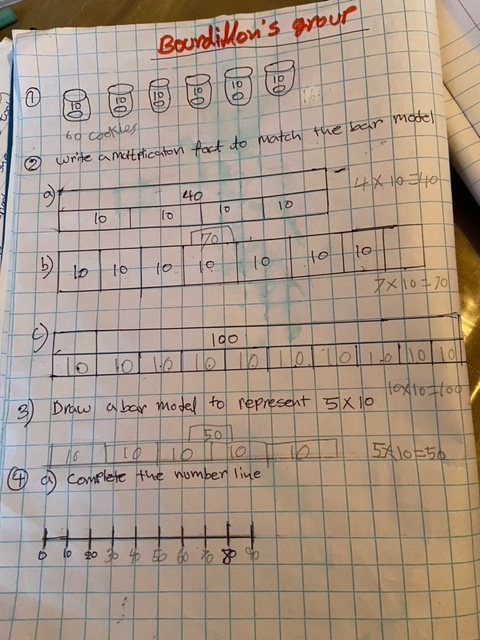 Bourdillon's group
① 10 10 10 10 10 10
60 cookies
② Write a multiplication fact to match the bar model
a) 40
10 10 10 10
4 × 10 = 40
b) 70
10 10 10 10 10 10 10
7 × 10 = 70
c) 100
10 10 10 10 10 10 10 10 10 10
10 × 10 = 100
3) Draw a bar model to represent 5 × 10
50
10 10 10 10 10
5 × 10 = 50
④ a) Complete the number line
0 10 20 30 40 50 60 70 80 90